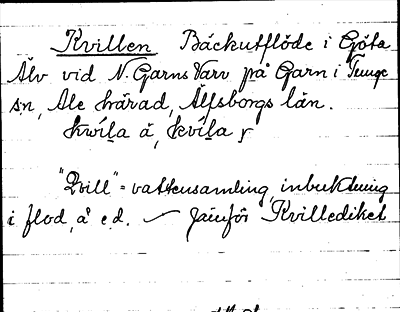 Kvillen Bäckutflöde i Göta
Älv vid N. Garns Varv på Garn i Tunge
sn, Ale härad, Älfsborgs län.
kvíla å, kvíla
"Qvill" = vattensamling, inbuktning
i flod, å e.d. — Jämför Kvillediket